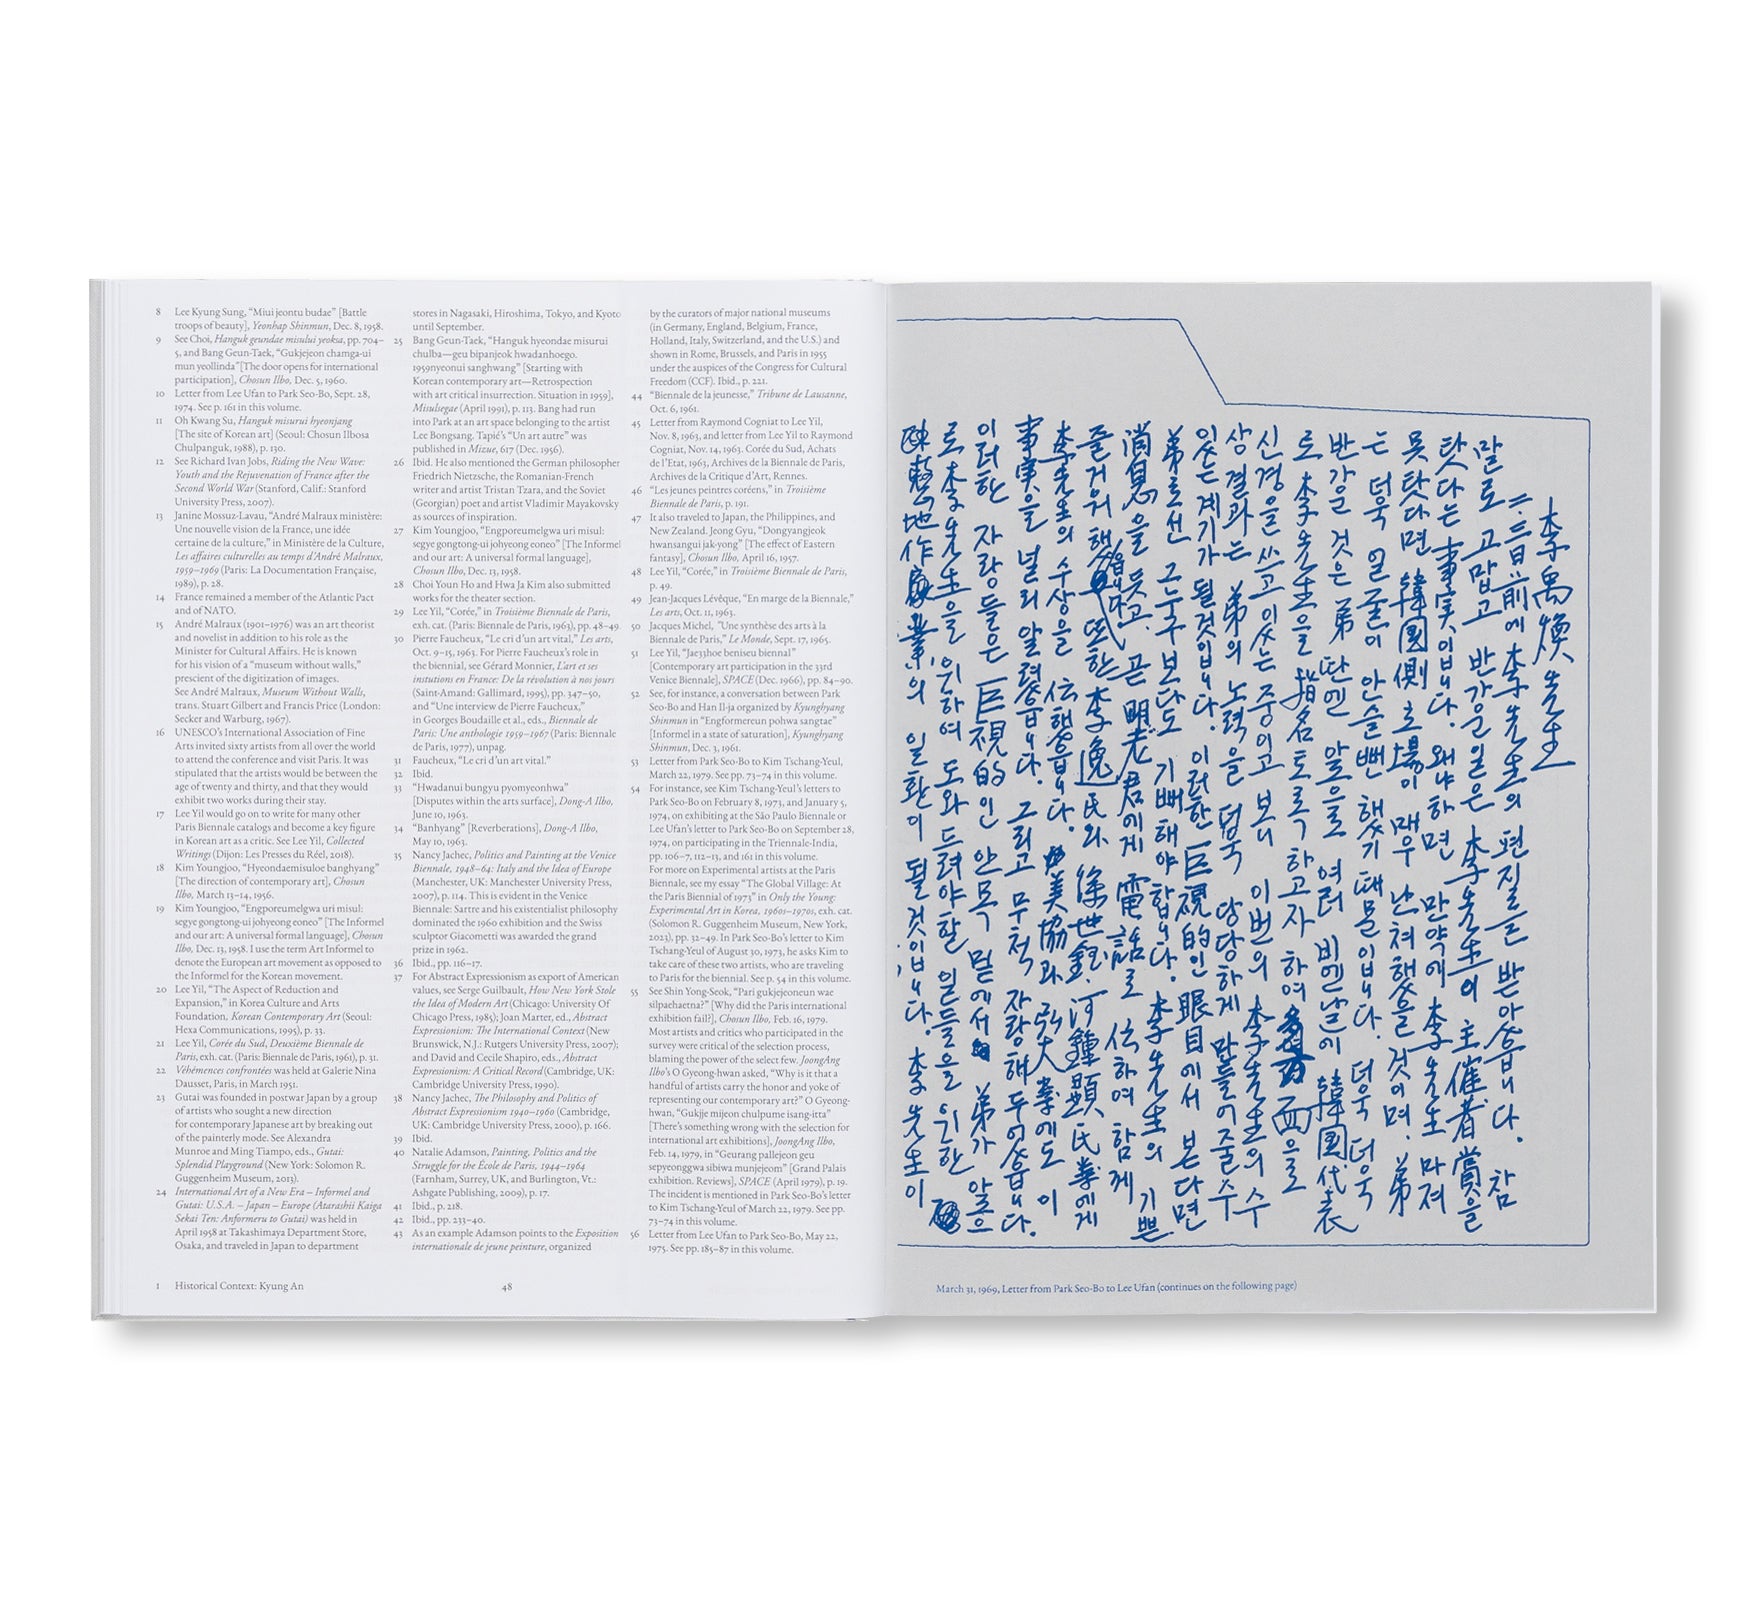 8 Lee Kyung Sung, “Miui jeontu budae” [Battle
troops of beauty], Yeonhap Shinmun, Dec. 8, 1958.
9 See Choi, Hanguk geundae misului yeoksa, pp. 704–
5, and Bang Geun-Taek, “Gukjejeon chamga-ui
mun yeollinda” [The door opens for international
participation], Chosun Ilbo, Dec. 5, 1960.
10 Letter from Lee Ufan to Park Seo-Bo, Sept. 28,
1974. See p. 161 in this volume.
11 Oh Kwang Su, Hanguk misurui hyeonjang
[The site of Korean art] (Seoul: Chosun Ilbosa
Chulpanguk, 1988), p. 130.
12 See Richard Ivan Jobs, Riding the New Wave:
Youth and the Rejuvenation of France after the
Second World War (Stanford, Calif.: Stanford
University Press, 2007).
13 Janine Mossuz-Lavau, “André Malraux ministère:
Une nouvelle vision de la France, une idée
certaine de la culture,” in Ministère de la Culture,
Les affaires culturelles au temps d’André Malraux,
1959–1969 (Paris: La Documentation Française,
1989), p. 28.
14 France remained a member of the Atlantic Pact
and of NATO.
15 André Malraux (1901–1976) was an art theorist
and novelist in addition to his role as the
Minister for Cultural Affairs. He is known
for his vision of a “museum without walls,”
prescient of the digitization of images.
See André Malraux, Museum Without Walls,
trans. Stuart Gilbert and Francis Price (London:
Secker and Warburg, 1967).
16 UNESCO’s International Association of Fine
Arts invited sixty artists from all over the world
to attend the conference and visit Paris. It was
stipulated that the artists would be between the
age of twenty and thirty, and that they would
exhibit two works during their stay.
17 Lee Yil would go on to write for many other
Paris Biennale catalogs and become a key figure
in Korean art as a critic. See Lee Yil, Collected
Writings (Dijon: Les Presses du Réel, 2018).
18 Kim Youngjoo, “Hyeondaemisuloe banghyang”
[The direction of contemporary art], Chosun
Ilbo, March 13–14, 1956.
19 Kim Youngjoo, “Engporeumelgwa uri misul:
segye gongtong-ui johyeong eoneo” [The Informel
and our Art: A universal formal language], Chosun
Ilbo, Dec. 13, 1958. I use the term Art Informel to
denote the European art movement as opposed to
the Informel for the Korean movement.
20 Lee Yil, “The Aspect of Reduction and
Expansion,” in Korea Culture and Arts
Foundation, Korean Contemporary Art (Seoul:
Hexa Communications, 1995), p. 33.
21 Lee Yil, Corée du Sud, Deuxième Biennale de
Paris, exh. cat. (Paris: Biennale de Paris, 1961), p. 31.
22 Véhémences confrontées was held at Galerie Nina
Dausset, Paris, in March 1951.
23 Gutai was founded in postwar Japan by a group
of artists who sought a new direction
for contemporary Japanese art by breaking out
of the painterly mode. See Alexandra
Munroe and Ming Tiampo, eds., Gutai:
Splendid Playground (New York: Solomon R.
Guggenheim Museum, 2013).
24 International Art of a New Era – Informel and
Gutai: U.S.A. – Japan – Europe (Atarashii Kaiga
Sekai Ten: Anformeru to Gutai) was held in
April 1958 at Takashimaya Department Store,
Osaka, and traveled in Japan to department
stores in Nagasaki, Hiroshima, Tokyo, and Kyoto
until September.
25 Bang Geun-Taek, “Hanguk hyeondae misurui
chulba—geu bipanjeok hwadanhoego.
1959nyeonui sanghwang” [Starting with
Korean contemporary art—Retrospection
with art critical insurrection. Situation in 1959],
Misulsegae (April 1991), p. 113. Bang had run
into Park at an art space belonging to the artist
Lee Bongsang. Tapié’s “Un art autre” was
published in Mizue, 617 (Dec. 1956).
26 Ibid. He also mentioned the German philosopher
Friedrich Nietzsche, the Romanian-French
writer and artist Tristan Tzara, and the Soviet
(Georgian) poet and artist Vladimir Mayakovsky
as sources of inspiration.
27 Kim Youngjoo, “Engporeumelgwa uri misul:
segye gongtong-ui johyeong eoneo” [The Informel
and our Art: A universal formal language],
Chosun Ilbo, Dec. 13, 1958.
28 Choi Youn Ho and Hwa Ja Kim also submitted
works for the theater section.
29 Lee Yil, “Corée,” in Troisième Biennale de Paris,
exh. cat. (Paris: Biennale de Paris, 1963), pp. 48–49.
30 Pierre Faucheux, “Le cri d’un art vital,” Les arts,
Oct. 9–15, 1963. For Pierre Faucheux’s role in
the biennial, see Gérard Monnier, L’art et ses
instutions en France: De la révolution à nos jours
(Saint-Amand: Gallimard, 1995), pp. 347–50,
and “Une interview de Pierre Faucheux,”
in Georges Boudaille et al., eds., Biennale de
Paris: Une anthologie 1959–1967 (Paris: Biennale
de Paris, 1977), unpag.
31 Faucheux, “Le cri d’un art vital.”
32 Ibid.
33 “Hwadanui bungyu pyomyeonhwa”
[Disputes within the arts surface], Dong-A Ilbo,
June 10, 1963.
34 “Banhyang” [Reverberations], Dong-A Ilbo,
May 10, 1963.
35 Nancy Jachec, Politics and Painting at the Venice
Biennale, 1948–64: Italy and the Idea of Europe
(Manchester, UK: Manchester University Press,
2007), p. 114. This is evident in the Venice
Biennale: Sartre and his existentialist philosophy
dominated the 1960 exhibition and the Swiss
sculptor Giacometti was awarded the grand
prize in 1962.
36 Ibid., pp. 116–17.
37 For Abstract Expressionism as export of American
values, see Serge Guilbault, How New York Stole
the Idea of Modern Art (Chicago: University Of
Chicago Press, 1985); Joan Marter, ed., Abstract
Expressionism: The International Context (New
Brunswick, N.J.: Rutgers University Press, 2007);
and David and Cecile Shapiro, eds., Abstract
Expressionism: A Critical Record (Cambridge, UK:
Cambridge University Press, 1990).
38 Nancy Jachec, The Philosophy and Politics of
Abstract Expressionism 1940–1960 (Cambridge,
UK: Cambridge University Press, 2000), p. 166.
39 Ibid.
40 Natalie Adamson, Painting, Politics and the
Struggle for the École de Paris, 1944–1964
(Farnham, Surrey, UK, and Burlington, Vt.:
Ashgate Publishing, 2009), p. 17.
41 Ibid., p. 218.
42 Ibid., pp. 233–40.
43 As an example Adamson points to the Exposition
internationale de jeune peinture, organized
by the curators of major national museums
(in Germany, England, Belgium, France,
Holland, Italy, Switzerland, and the U.S.) and
shown in Rome, Brussels, and Paris in 1955
under the auspices of the Congress for Cultural
Freedom (CCF). Ibid., p. 221.
44 “Biennale de la jeunesse,” Tribune de Lausanne,
Oct. 6, 1961.
45 Letter from Raymond Cogniat to Lee Yil,
Nov. 8, 1963, and letter from Lee Yil to Raymond
Cogniat, Nov. 14, 1963. Corée du Sud, Achats
de l’Etat, 1963, Archives de la Biennale de Paris,
Archives de la Critique d’Art, Rennes.
46 “Les jeunes peintres coréens,” in Troisième
Biennale de Paris, p. 191.
47 It also traveled to Japan, the Philippines, and
New Zealand. Jeong Gyu, “Dongyangjeok
hwansangui jak-yong” [The effect of Eastern
fantasy], Chosun Ilbo, April 16, 1957.
48 Lee Yil, “Corée,” in Troisième Biennale de Paris,
p. 49.
49 Jean-Jacques Lévêque, “En marge de la Biennale,”
Les arts, Oct. 11, 1963.
50 Jacques Michel, "Une synthèse des arts à la
Biennale de Paris,” Le Monde, Sept. 17, 1965.
51 Lee Yil, “Jae33hoe beniseu biennal”
[Contemporary art participation in the 33rd
Venice Biennale], SPACE (Dec. 1966), pp. 84–90.
52 See, for instance, a conversation between Park
Seo-Bo and Han Il-ja organized by Kyunghyang
Shinmun in “Engformereun pohwa sangtae”
[Informel in a state of saturation], Kyunghyang
Shinmun, Dec. 3, 1961.
53 Letter from Park Seo-Bo to Kim Tschang-Yeul,
March 22, 1979. See pp. 73–74 in this volume.
54 For instance, see Kim Tschang-Yeul’s letters to
Park Seo-Bo on February 8, 1973, and January 5,
1974, on exhibiting at the São Paulo Biennale or
Lee Ufan’s letter to Park Seo-Bo on September 28,
1974, on participating in the Triennale-India,
pp. 106–7, 112–13, and 161 in this volume.
For more on Experimental artists at the Paris
Biennale, see my essay “The Global Village: At
the Paris Biennial of 1973” in Only the Young:
Experimental Art in Korea, 1960s–1970s, exh. cat.
(Solomon R. Guggenheim Museum, New York,
2023), pp. 32–49. In Park Seo-Bo’s letter to Kim
Tschang-Yeul of August 30, 1973, he asks Kim to
take care of these two artists, who are traveling
to Paris for the biennial. See p. 54 in this volume.
55 See Shin Yong-Seok, “Pari gukjejeoneun wae
silpaehaetna?” [Why did the Paris international
exhibition fail?], Chosun Ilbo, Feb. 16, 1979.
Most artists and critics who participated in the
survey were critical of the selection process,
blaming the power of the select few. JoongAng
Ilbo’s O Gyeong-hwan asked, “Why is it that a
handful of artists carry the honor and yoke of
representing our contemporary art?” O Gyeong-
hwan, “Gukjje mijeon chulpume isang-itta”
[There’s something wrong with the selection for
international art exhibitions], JoongAng Ilbo,
Feb. 14, 1979, in “Geurang pallejeon geu
sepyeonggwa sibiwa munjejeom” [Grand Palais
exhibition. Reviews], SPACE (April 1979), p. 19.
The incident is mentioned in Park Seo-Bo’s letter
to Kim Tschang-Yeul of March 22, 1979. See pp.
73–74 in this volume.
56 Letter from Lee Ufan to Park Seo-Bo, May 22,
1975. See pp. 185–87 in this volume.
1 Historical Context: Kyung An
48
李禹煥 先生
二.三日前에 李先生의 편질를 받아습니다. 참
말로 고맙고 반가운일은 李先生의 主催者賞을
탓다는 事実입니다. 왜냐하면 만약에 李先生 마져
못탓다면 韓國側 立場이 매우 난쳐했을 것이며. 弟
는 더욱 얼굴이 안슬뻔 했기 때몰입니다. 더욱 더욱
반가운 것은 弟 딴엔 앞으로 여러 비엔날에 韓國代表
로 李先生을 指名토록 하고자 하여 面으로
신경을 쓰고 있는 중이고 보니 이번의 李先生의 수
상 결과는 弟의 노력을 더욱 당당하게 만들어줄수
있는 계기가 될것입니다. 이러한 巨視的인 眼目에서 본다면
弟로선 그누구 보다도 기뻐해야 합니다. 李先生의 기쁜
消息을 듯고. 곧 明老君에게 電話로 伝하여 함께
즐거워 해습니다 또한 李逸氏와 徐世鈺.河鍾顯氏 等에게
李先生의 수상을 伝했습니다. 美協과 弘大 等에도 이
事実을 널리 알려습니다. 그리고 무척 자랑해 두어습니다.
이러한 자랑들은 巨視的인 안목 밑에서 弟가 앞으
로 李先生을 위하여 도와 드려야할 일들을 위한
整地作業의 일환이 될것입니다. 李先生이
March 31, 1969, Letter from Park Seo-Bo to Lee Ufan (continues on the following page)